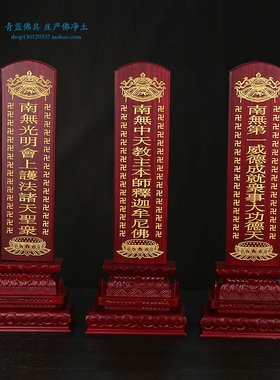 青蓝佛具 庄严佛净土
shop130129337.taobao.com
南無光明會上護法諸天聖衆
南無中天教主本師釋迦牟尼佛
南無第一威德成就衆事大功德天